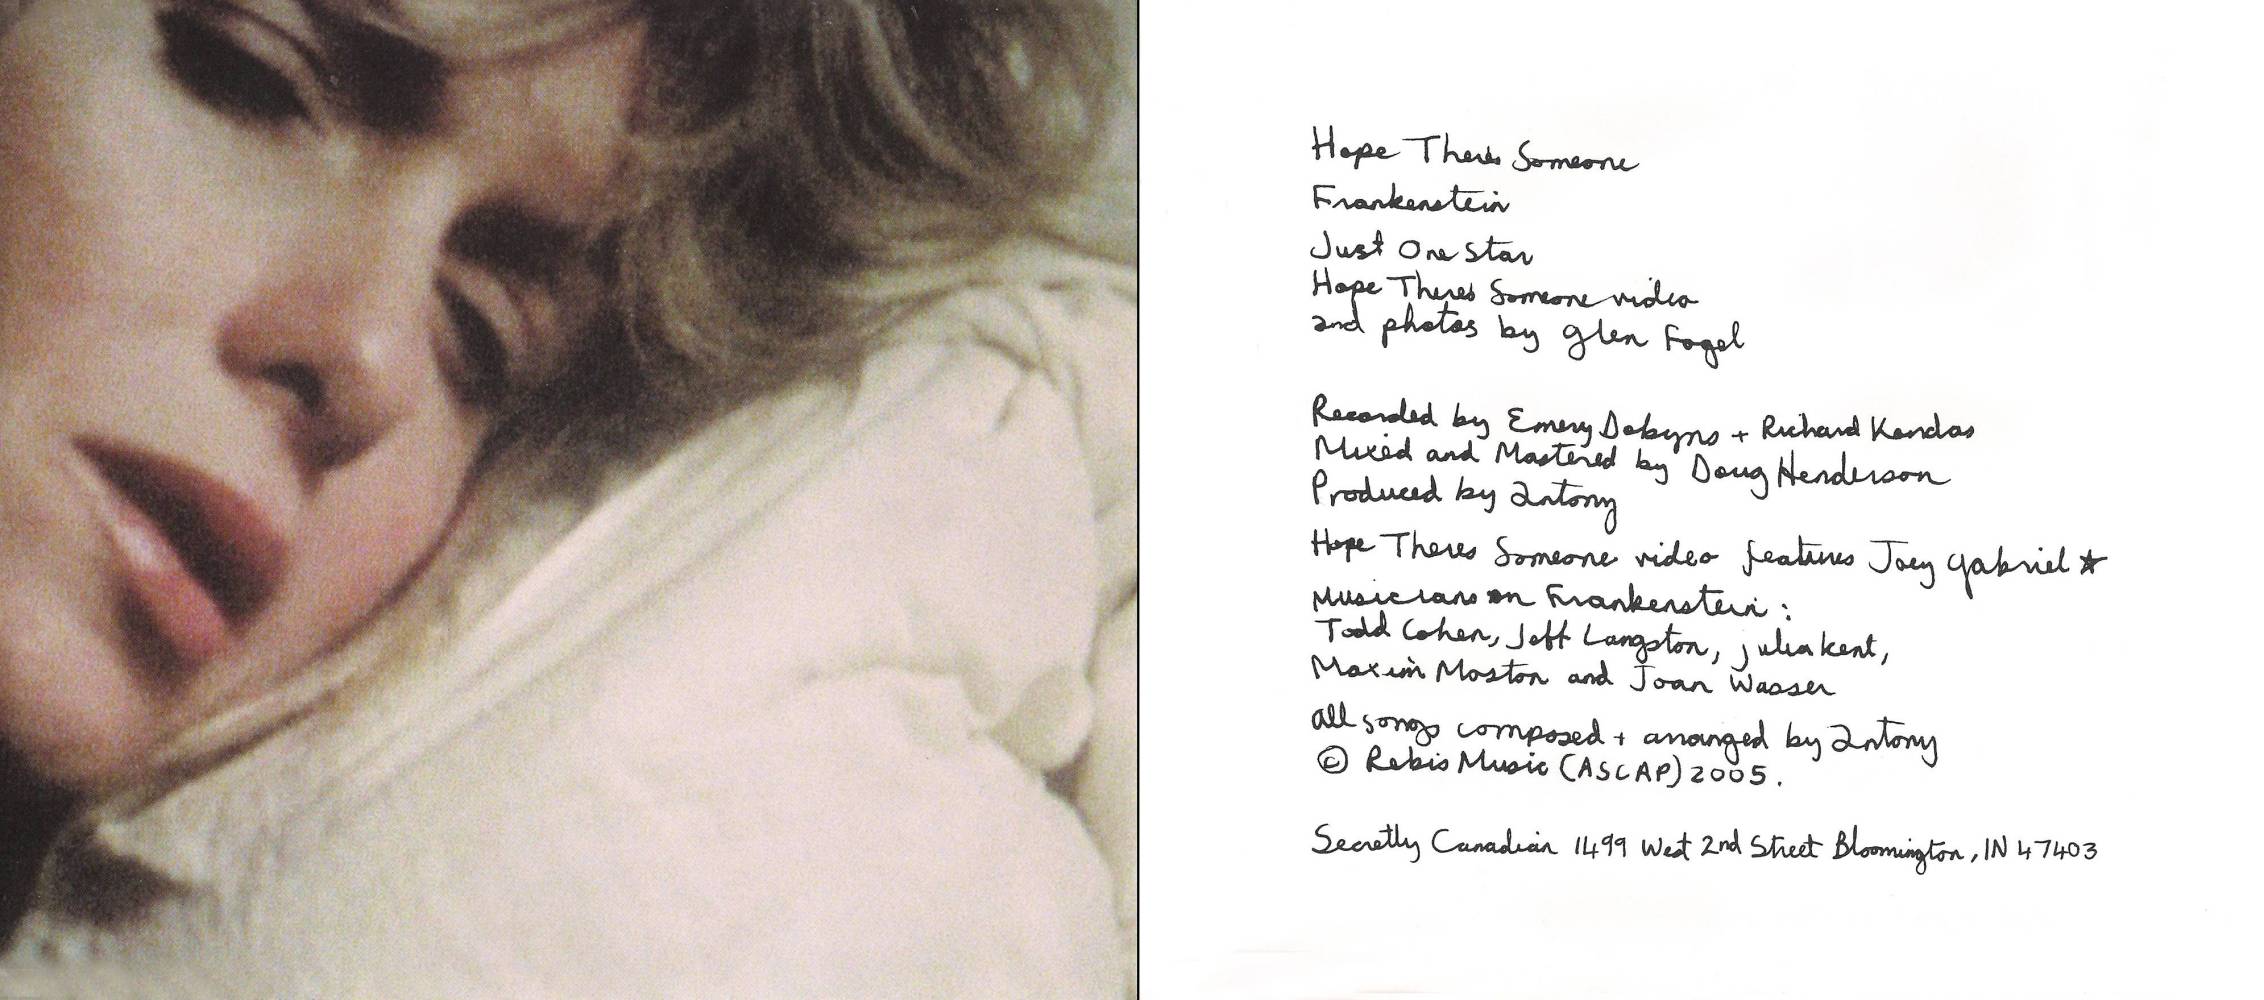 Hope Theres Someone
Frankenstein
Just One Star
Hope Theres Someone video
and photos by Glen Fogel
Recorded by Emery Dobyns + Richard Kandas
Mixed and Mastered by Doug Henderson
Produced by Antony
Hope Theres Someone video features Joey Gabriel ★
Musicians on Frankenstein:
Todd Cohen, Jeff Langston, julia kent,
Maxim Moston and Joan Wasser
all songs composed + arranged by Antony
© Rebis Music (ASCAP) 2005.
Secretly Canadian 1499 West 2nd Street Bloomington, IN 47403